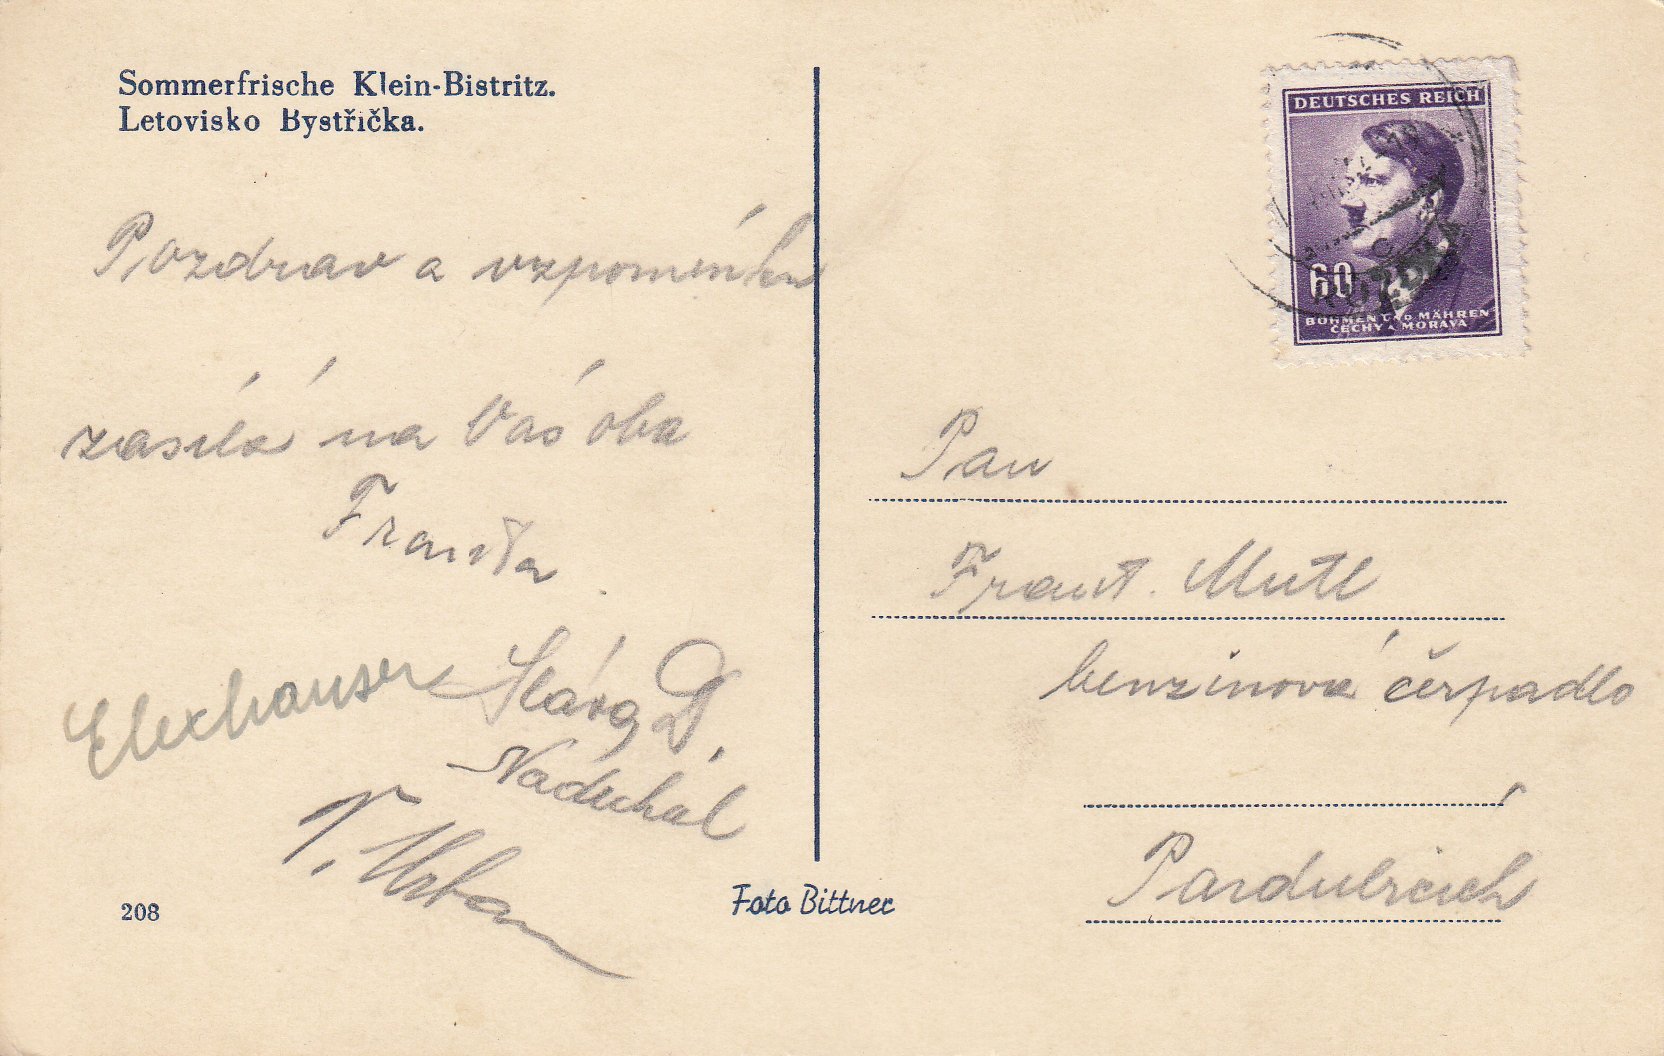 Sommerfrische Klein-Bistritz.
Letovisko Bystřička.
Pozdrav a vzpomínku
zasílá na Vás oba
Franta
Sláva D.
Naduchál
V. Urban
208
Foto Bittner
DEUTSCHES REICH
60
BÖHMEN UND MÄHREN
ČECHY A MORAVA
Pan
Frant. Mutl
benzinová čerpadlo
Pardubicích